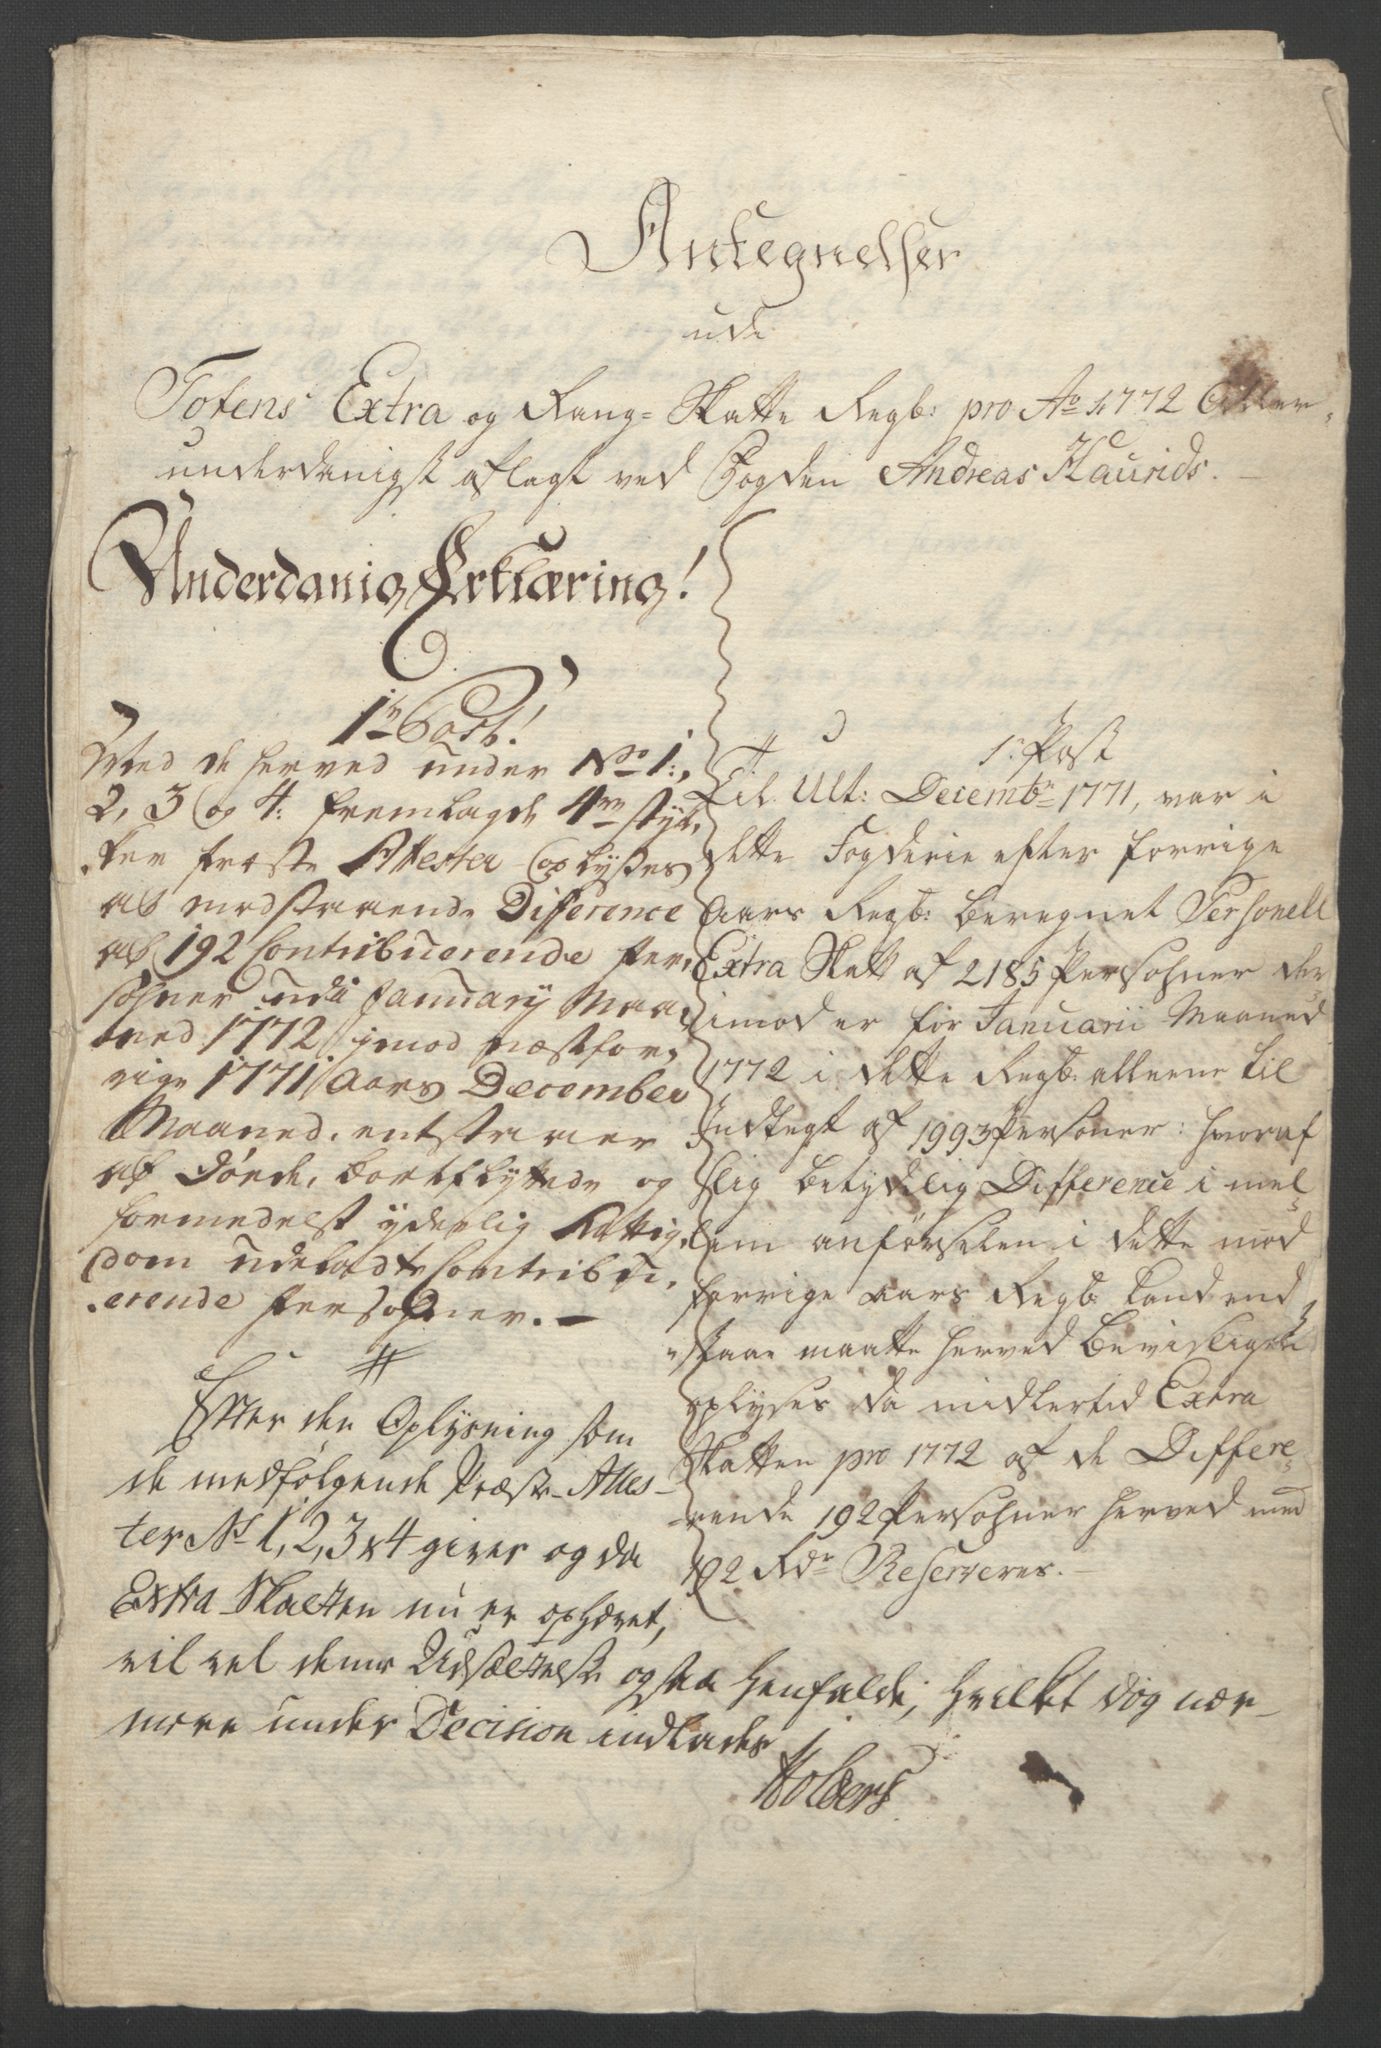 Antegnelser
udi
Totens Extra og Rang-Skatte Regb: pro Ao 1772 Aller-
underdanigst aflagt ved Fogden Andreas Haurids.
Underdanig Erklæring!
1te Post!
Med de herved under No 1:,
2, 3 og 4: fremlagde 4re styk-
ker Præste Attester oplyses
at modstaaende Difference
af 192 Contribuerende Per-
sohner udi January Maa-
ned 1772 imod næstfor-
rige 1771 Aars December
Maaned, entstaaer
af Døde, bortflyttede og
formedelst yderlig Fattig-
dom udeladte Contribu-
erende Persohner. –
#
Efter den Oplysning som
de medfølgende Præste-Attes-
ter No 1, 2, 3 & 4 giver og da
Extra Skatten nu er ophævet,
vil vel denne Udsættelse ogsaa henfalde, hvilket dog nær-
mere under Decision indlades
Holbers
1. Post
Til Ult: Decembr 1771, var i
dette Fogderie efter forrige
Aars Regb: beregnet Personell
Extra Skatt af 2185 Persohner der
imod er for Januarii Maaned
1772 i dette Regb: alleene til
Indtegt af 1993 Personer: hvoraf
slig betydelig Difference i mel-
lem anførselen i dette mod
forrige Aars Regb: kand end-
staae maatte herved beviisligst
oplyses da midlertid Extra
Skatten pro 1772 af de Differe-
rende 192 Persohner herved med
192 Rdr Reserveres. –